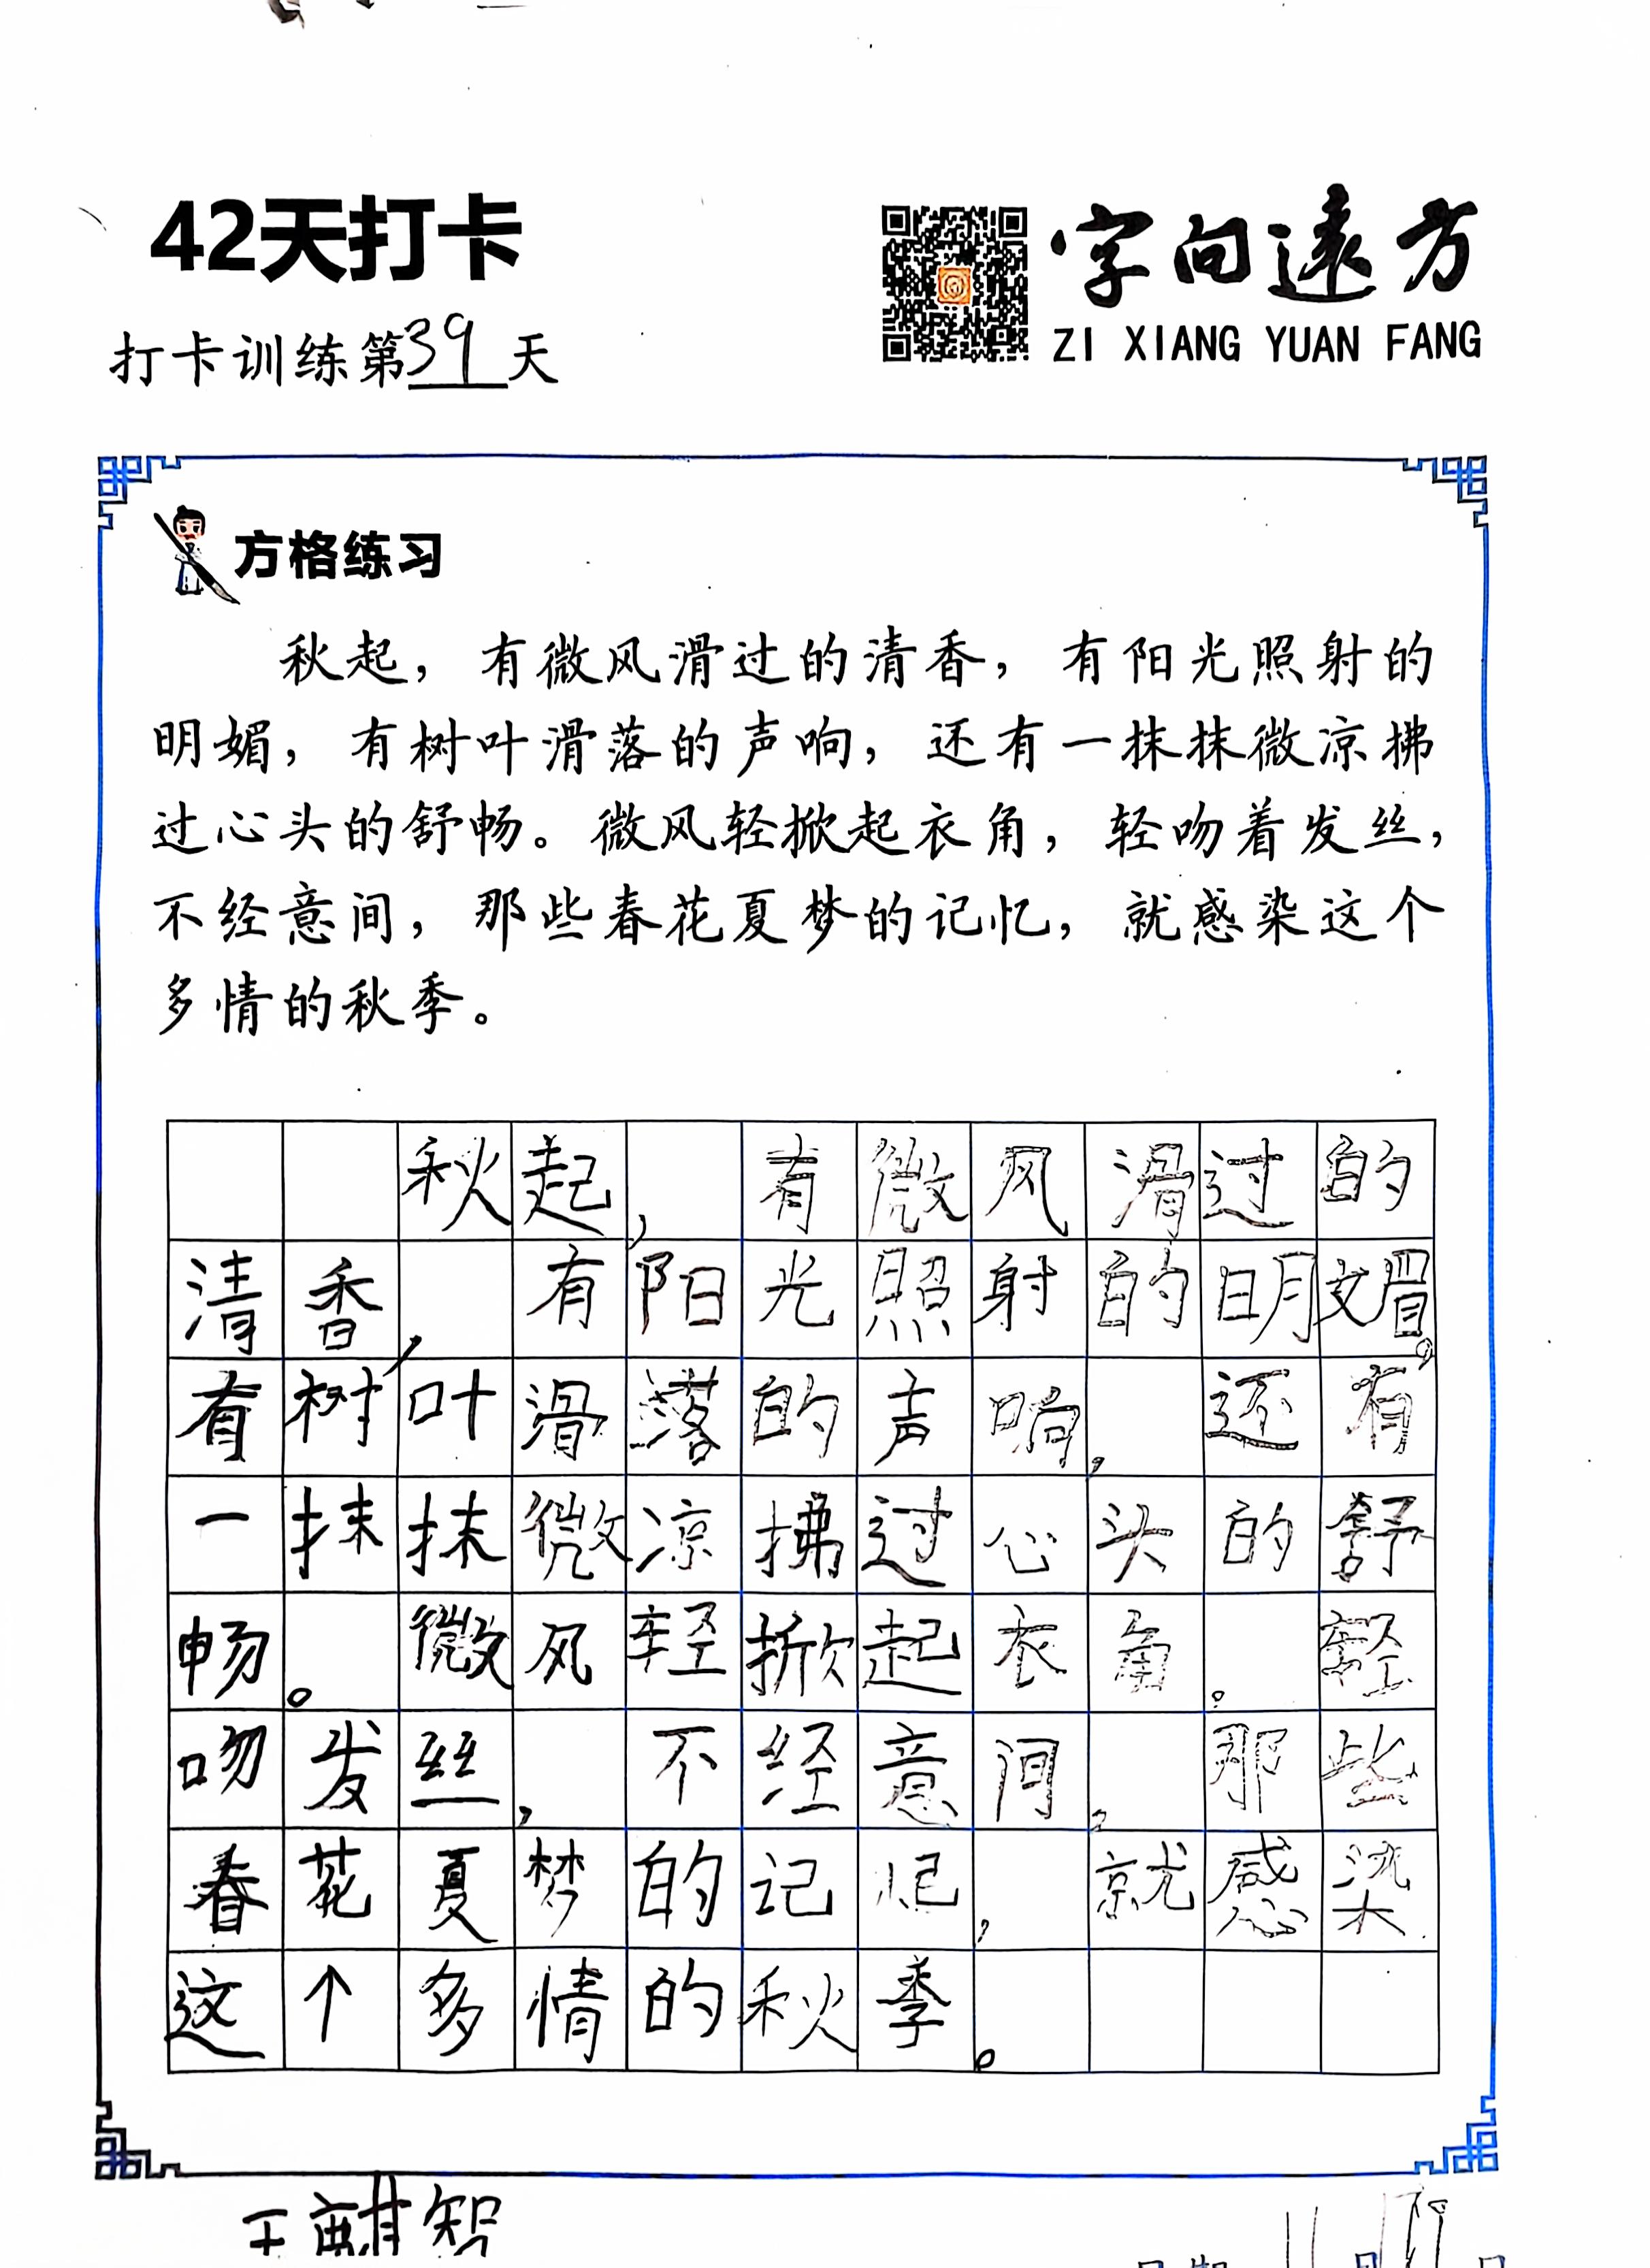 42天打卡
字向遠方
ZI XIANG YUAN FANG
打卡训练第39天
方格练习
秋起，有微风滑过的清香，有阳光照射的
明媚，有树叶滑落的声响，还有一抹抹微凉拂
过心头的舒畅。微风轻掀起衣角，轻吻着发丝，
不经意间，那些春花夏梦的记忆，就感染这个
多情的秋季。
秋起，有微风滑过的
清香，有阳光照射的明媚，
有树叶滑落的声响，还有
一抹抹微凉拂过心头的舒
畅。微风轻掀起衣角。轻
吻发丝，不经意间，那些
春花夏梦的记忆，就感染
这个多情的秋季。